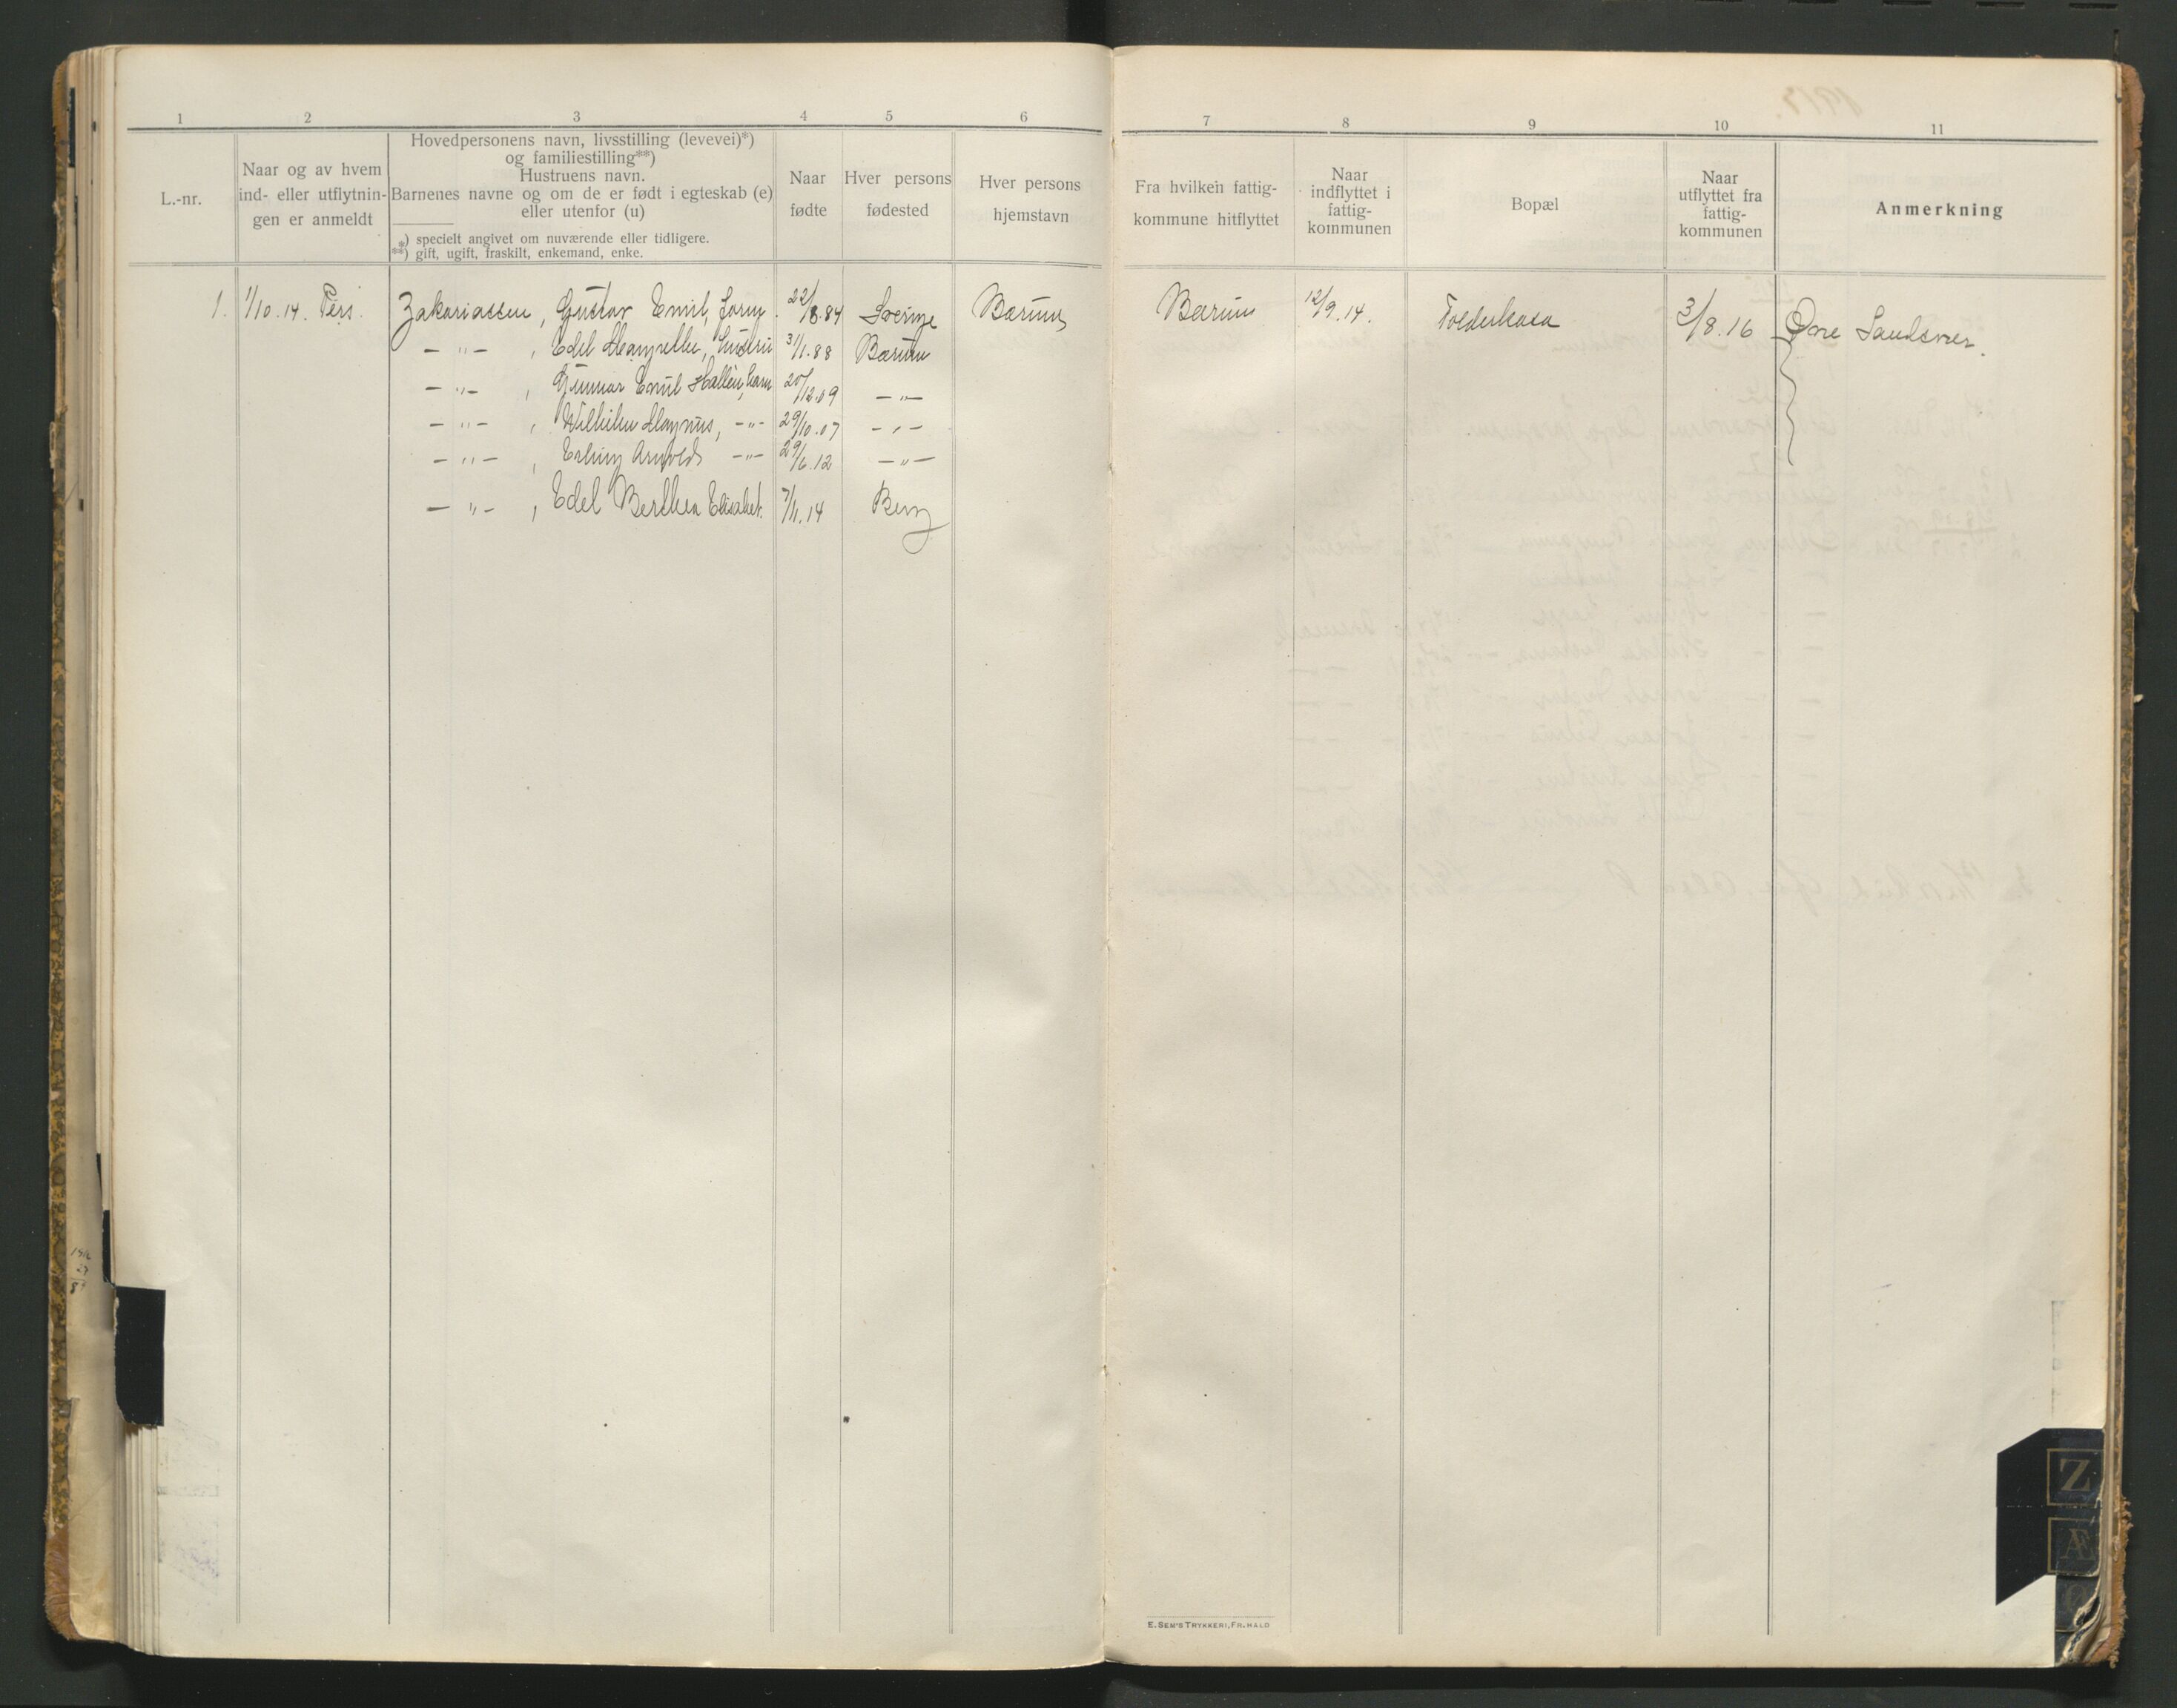 1 2 3 4 5 6 7 8 9 10 11
L.-nr.
Naar og av hvem
ind- eller utflytnin-
gen er anmeldt
Hovedpersonens navn, livsstilling (levevei)*)
og familiestilling**)
Hustruens navn.
Barnenes navne og om de er født i egteskab (e)
eller utenfor (u)
*) specielt angivet om nuværende eller tidligere.
**) gift, ugift, fraskilt, enkemand, enke.
Naar
fødte
Hver persons
fødested
Hver persons
hjemstavn
Fra hvilken fattig-
kommune hitflyttet
Naar
indflyttet i
fattig-
kommunen
Bopæl
Naar
utflyttet fra
fattig-
kommunen
Anmerkning
1. 1/10.14. Pers. Zakariassen, Gustav Emil, 22/8.84 Sverige Bærum Bærum 12/9.14. 3/8.16 Øvre Sandsvær.
— " — , Edel Margrethe, hustru 3/1.88 Bærum
— " — , Gunnar Emil Hallèn, barn 20/12.09 — " —
— " — , Wilhelm Magnus, — " — 29/10.07 — " —
— " — , Erling Arnold — " — 29/6.12 — " —
— " — , Edel Berthea Elisabet. 7/11.14 Berg
E. SEM'S TRYKKERI, FR.HALD
Z
Æ